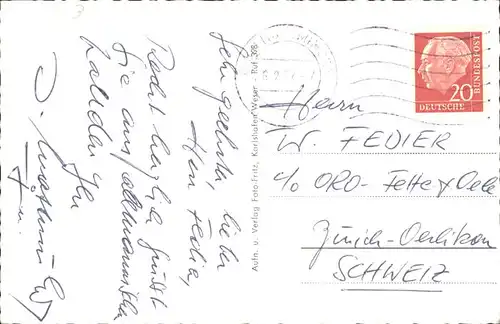 Sehr geehrter, lieber
Herr Fedier,
Recht herzlich grüsst
Sie auf
Ihr
Aufn. u. Verlag Foto-Fritz, Karlshafen Weser - Ruf 368
20
DEUTSCHE
BUNDESPOST
Herrn
W. FEDIER
c/o ORO-Fette & Oele
Zürich-Oerlikon
SCHWEIZ